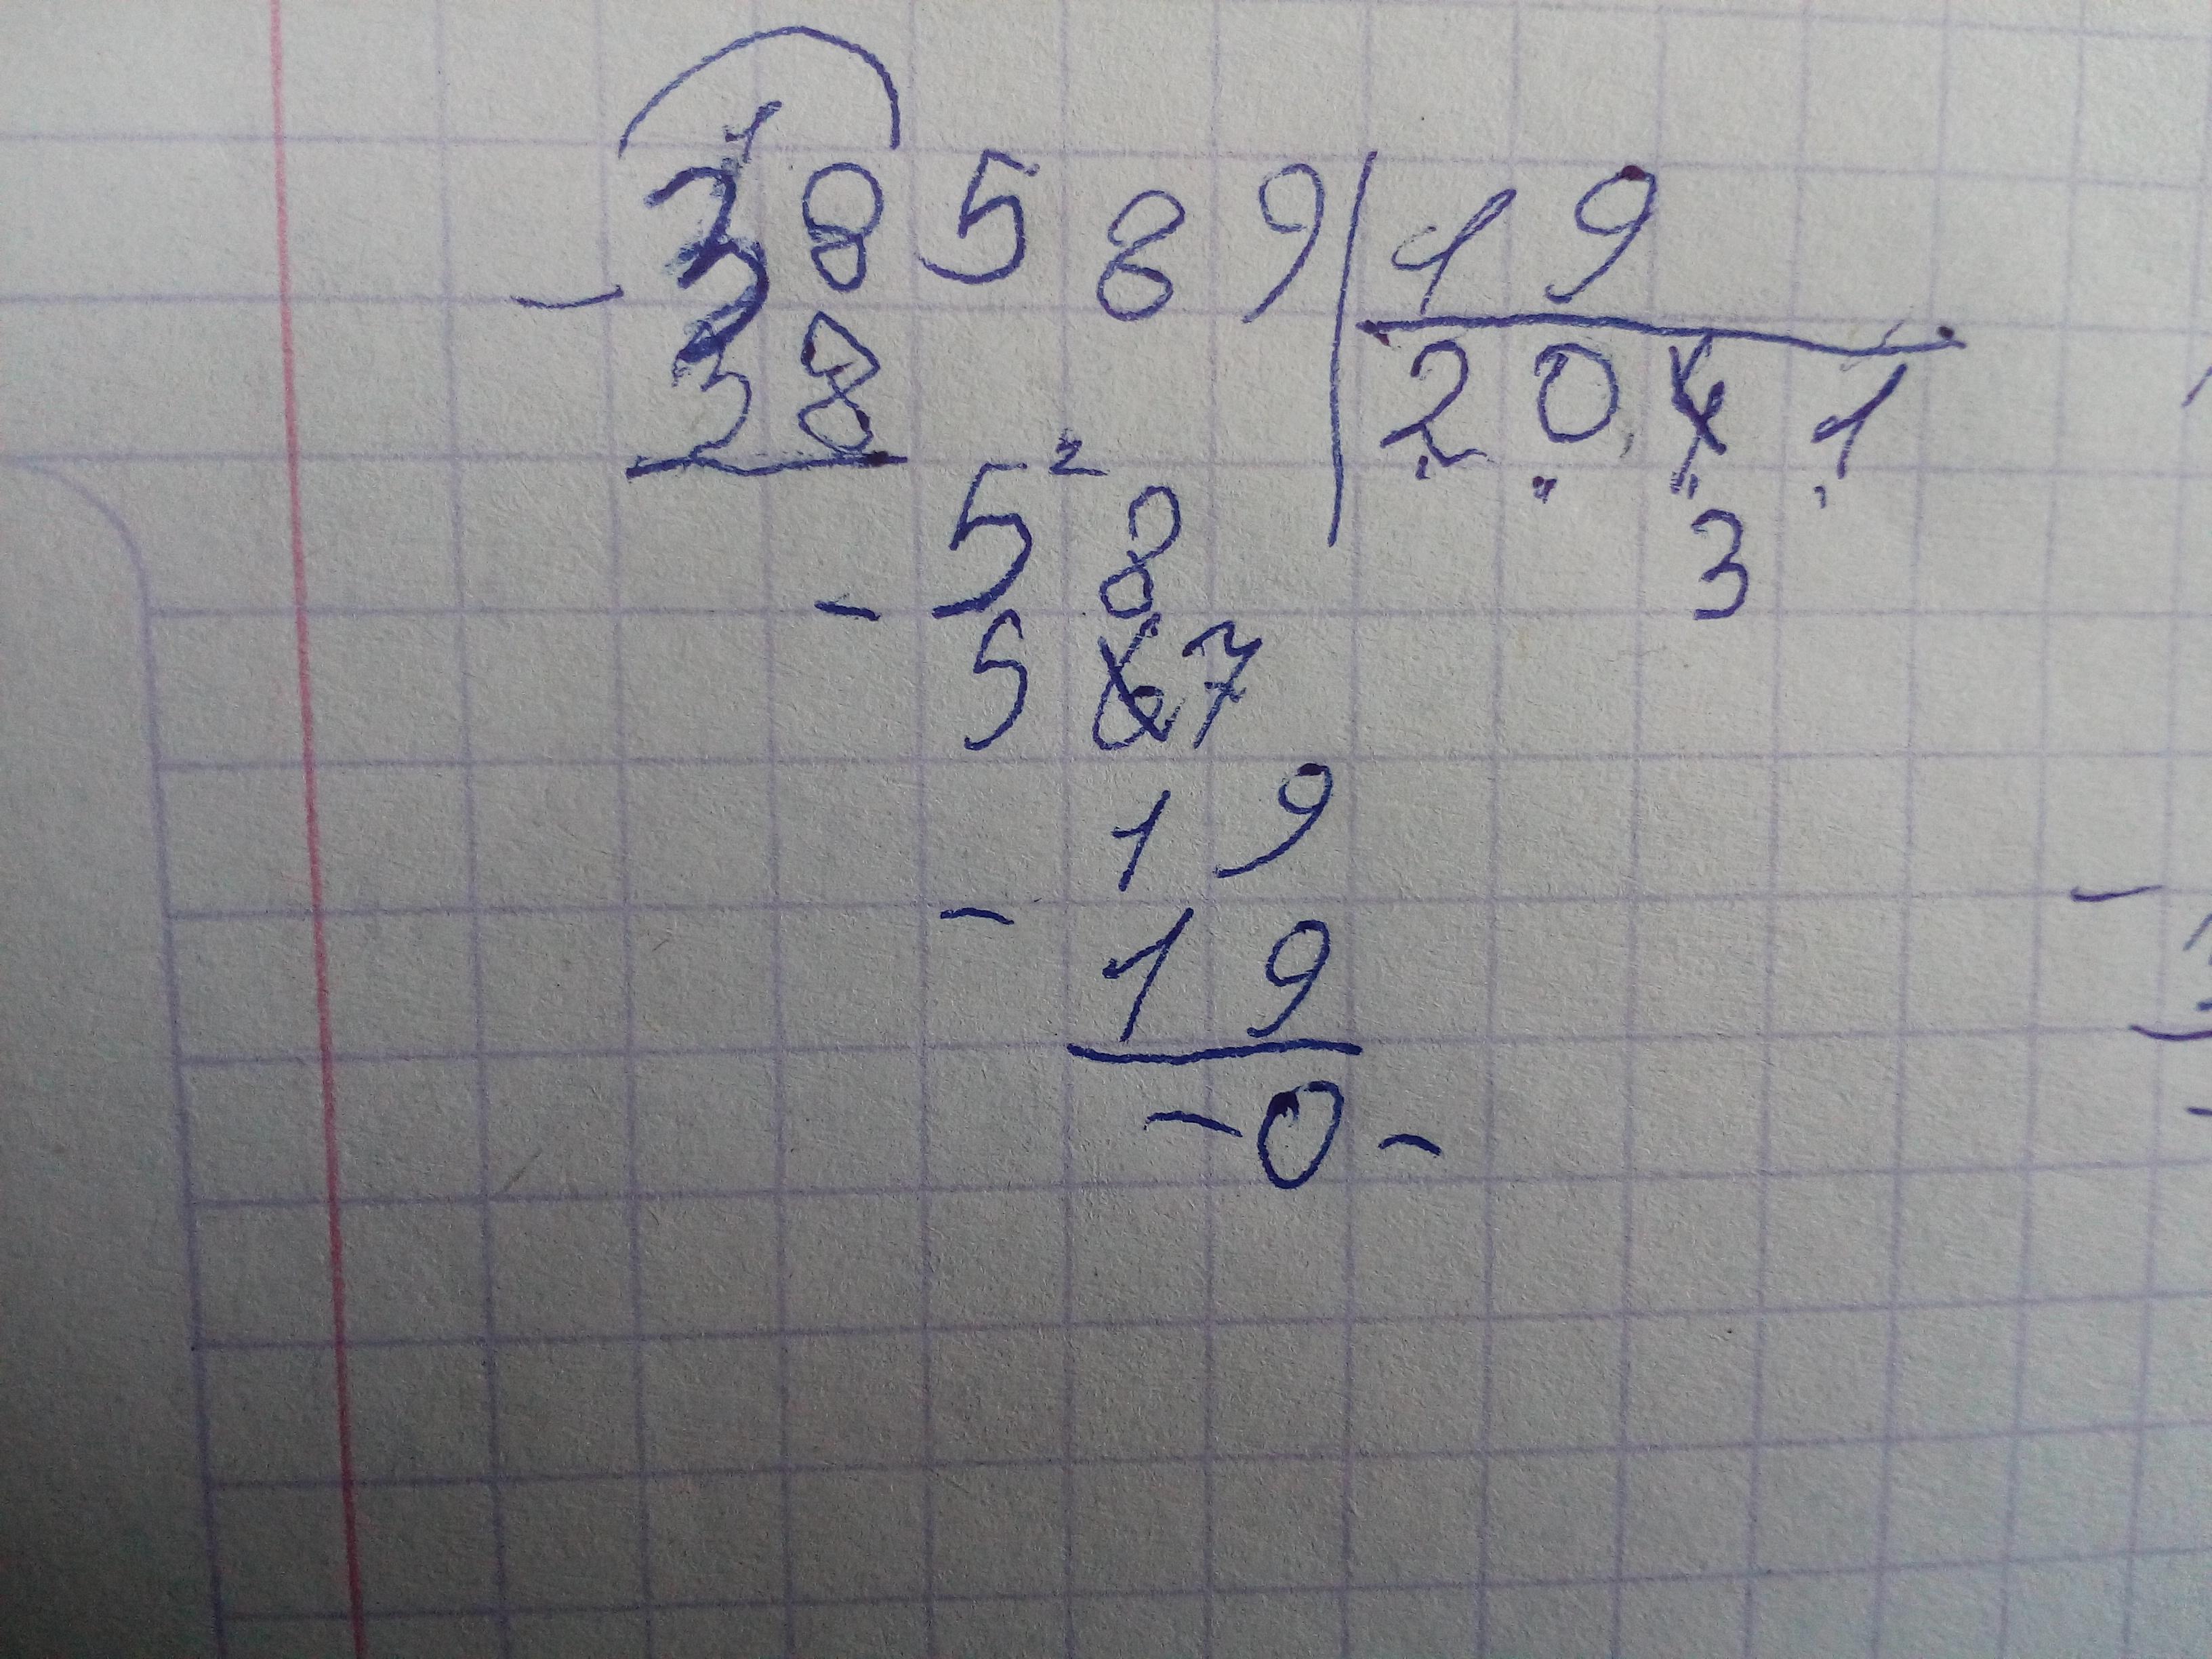 1
38589 19
- 38 2041
2 3
58
- 57
19
- 19
- 0 -